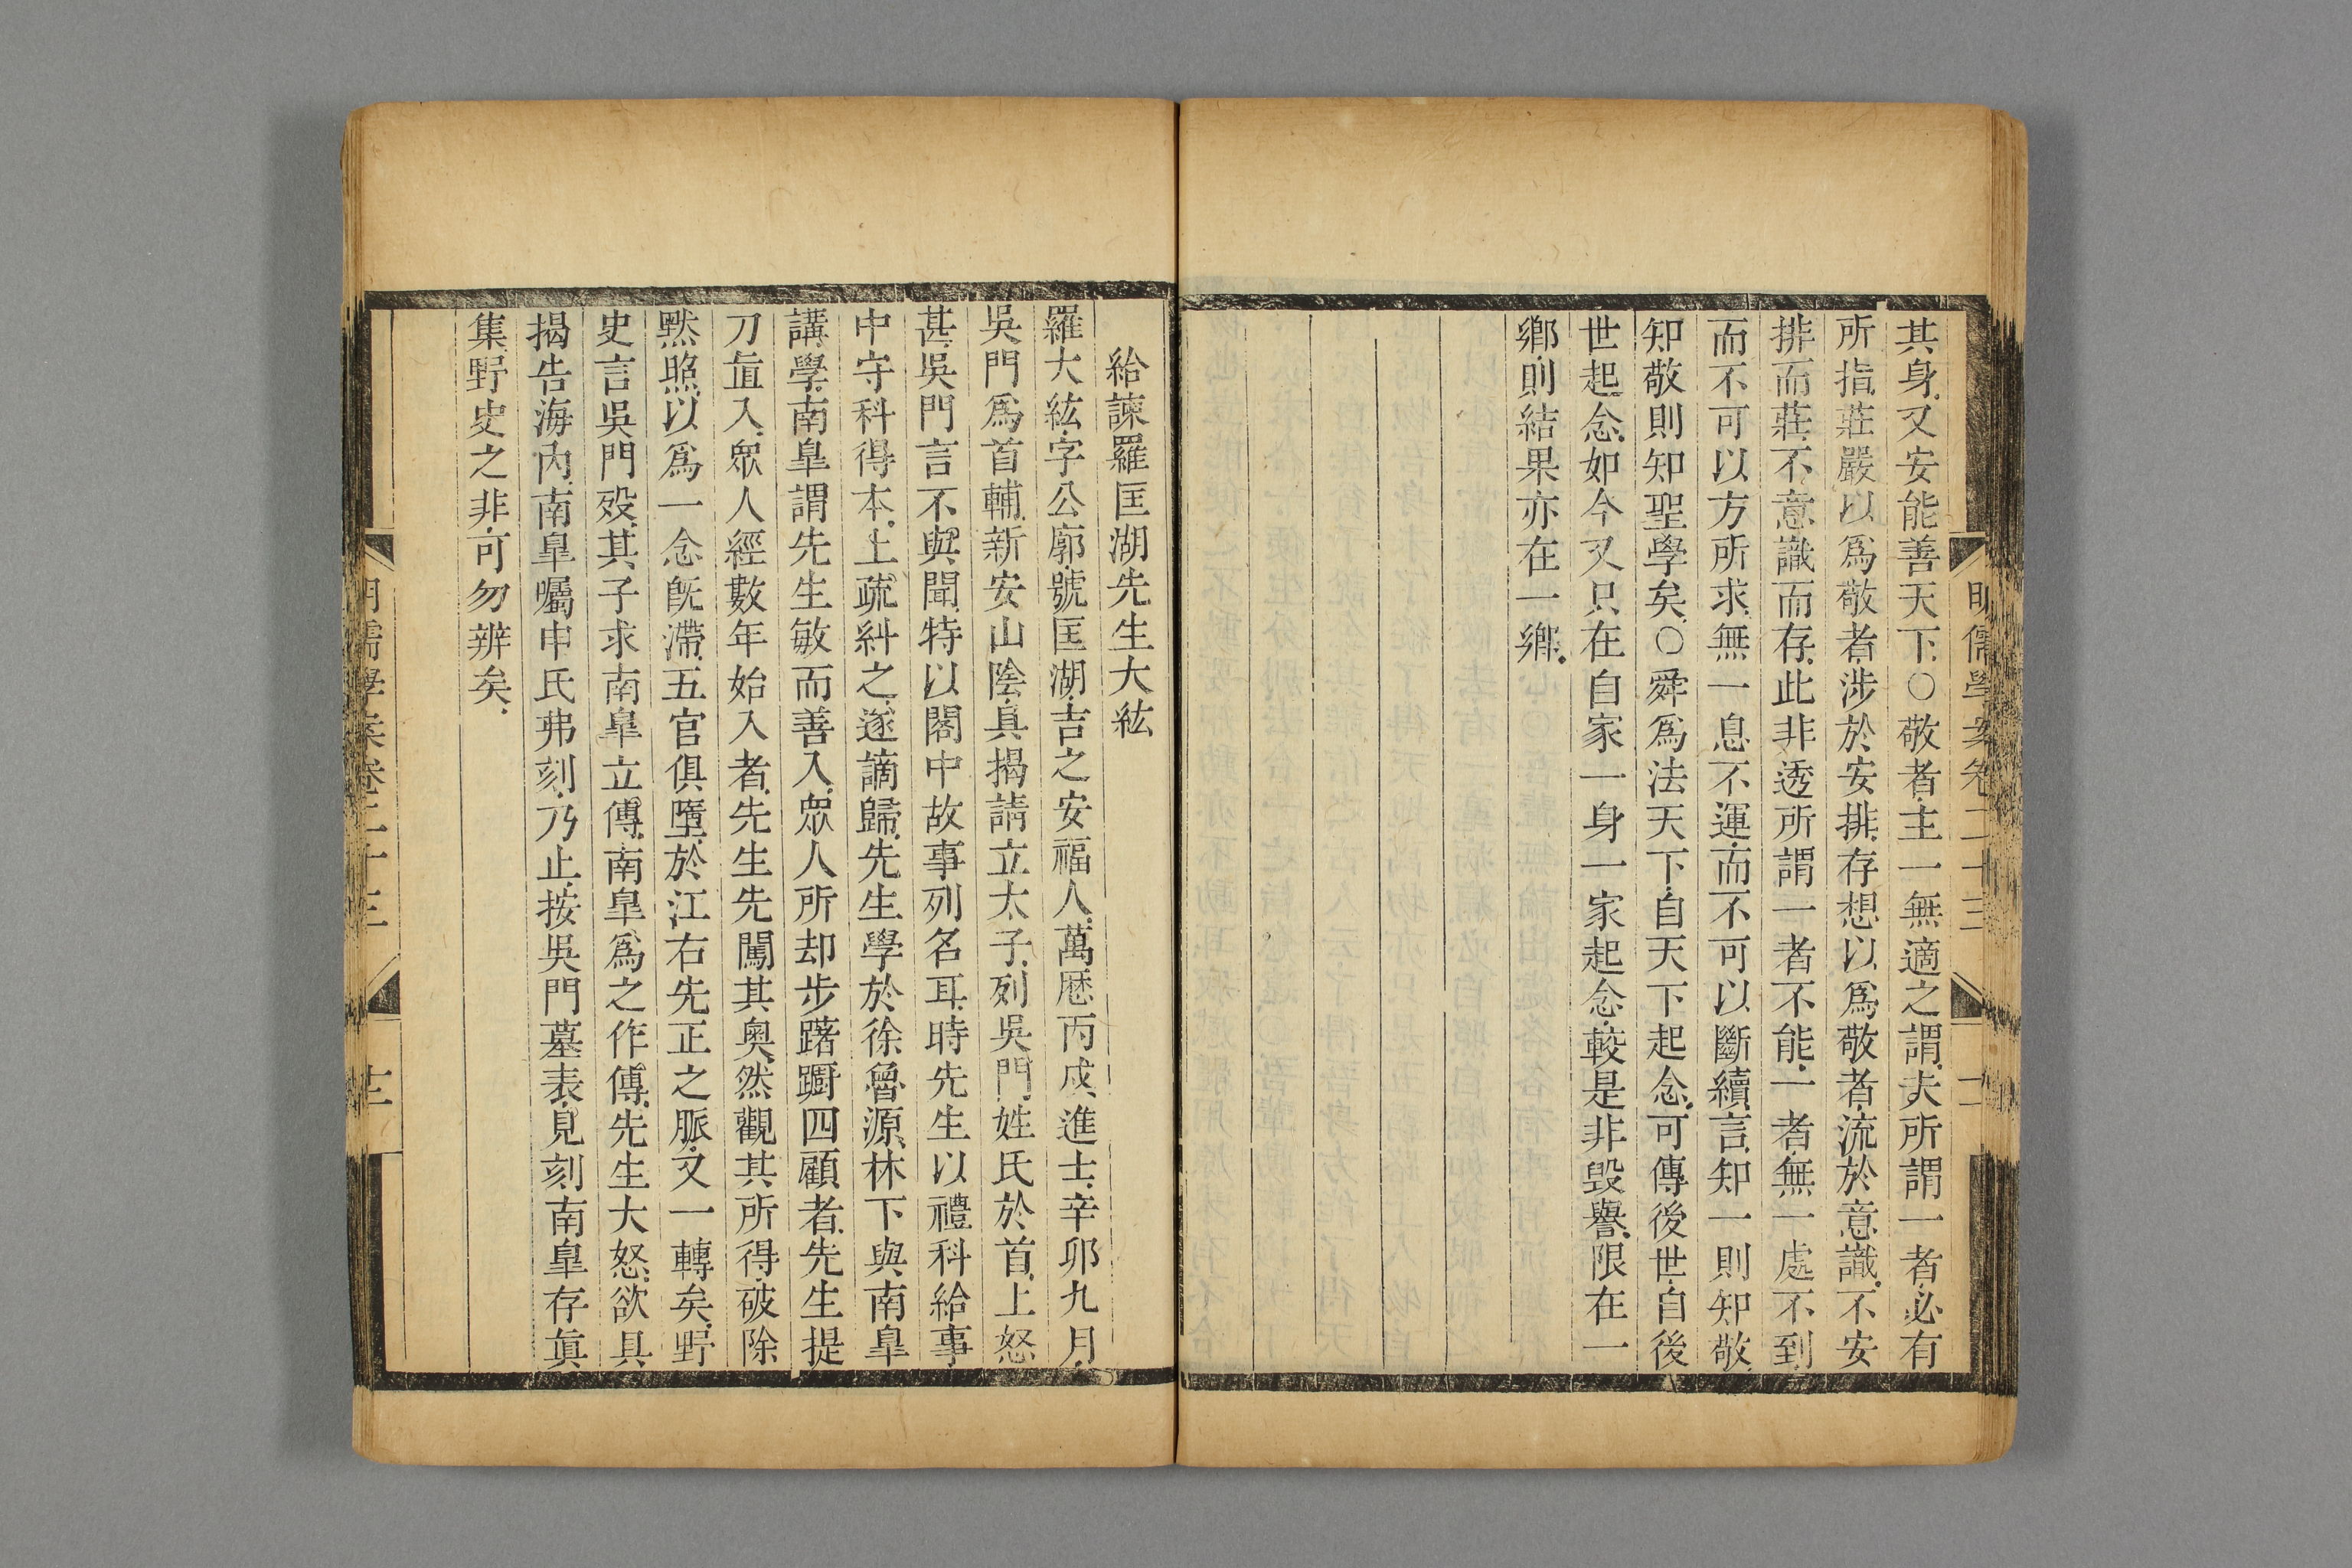 明儒學案卷二十三
其身又安能善天下〇敬者主一無適之謂夫所謂一者必有
所指莊嚴以爲敬者涉於安排存想以爲敬者流於意識不安
排而莊不意識而存此非透所謂一者不能一者無一處不到
而不可以方所求無一息不運而不可以斷續言知一則知敬
知敬則知聖學矣〇舜爲法天下自天下起念可傳後世自後
世起念如今又只在自家一身一家起念較是非毀譽限在一
鄉則結果亦在一鄉
給諫羅匡湖先生大紘
羅大紘字公廓號匡湖吉之安福人萬厯丙戌進士辛卯九月
吳門爲首輔新安山陰具揭請立太子列吳門姓氏於首上怒
甚吳門言不與聞特以閣中故事列名耳時先生以禮科給事
中守科得本上疏糾之遂謫歸先生學於徐魯源林下與南臯
講學南臯謂先生敏而善入眾人所却步躊躕四顧者先生提
刀直入眾人經數年始入者先生先闖其奧然觀其所得破除
默照以爲一念旣滯五官俱墮於江右先正之脈又一轉矣野
史言吳門歿其子求南臯立傳南臯爲之作傳先生大怒欲具
揭告海內南臯囑申氏弗刻乃止按吳門墓表見刻南臯存眞
集野史之非可勿辨矣
明儒學案卷二十三